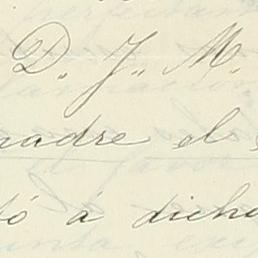 D. J. M.
madre el
tó á dicho